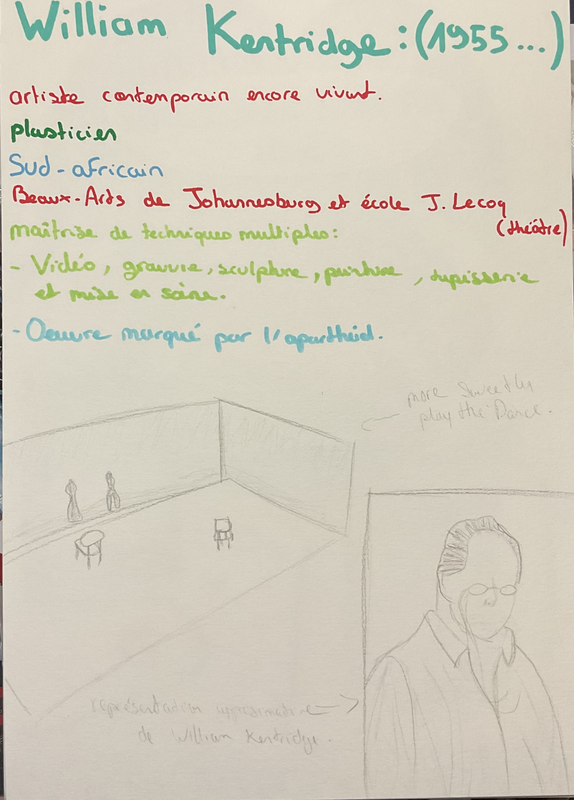 William Kentridge : (1955...)
artiste contemporain encore vivant.
plasticien
Sud-africain
Beaux-Arts de Johannesburg et école J. Lecoq
(théâtre)
maîtrise de techniques multiples :
- Vidéo, gravure, sculpture, peinture, tapisserie
et mise en scène.
- Oeuvre marqué par l'apartheid.
more Sweetly
play the Dance.
représentation approximative
de William Kentridge.